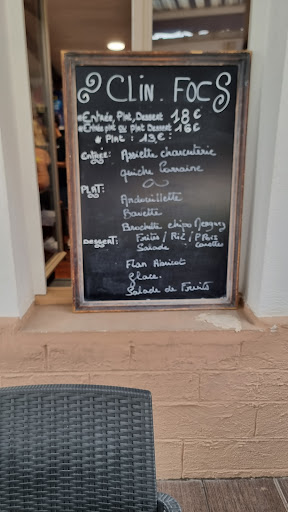 CLIN . FOCS
*Entrée, Plat, Dessert 18€
*Entrée plat ou plat Dessert 16€
* Plat : 13€ :
Entrée: Assiette charcuterie
quiche Lorraine
PLAT: Andouillette
Bavette
Brochette chipo Merguez
Frites / Riz / P. Pois carottes
Salade
DESSERT:
Flan Abricot
glace.
Salade de Fruits